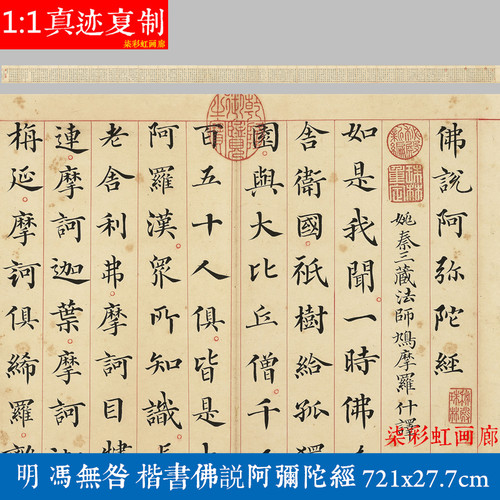 1:1真迹复制
柒彩虹画廊
佛說阿弥陀經
姚秦三藏法師鳩摩羅什譯
如是我聞一時佛
舍衛國祇樹給孤獨
園與大比丘僧千
百五十人俱皆是
阿羅漢眾所知識
老舍利弗摩訶目犍
連摩訶迦葉摩訶
稱延摩訶俱絺羅
柒彩虹画廊
明 馮無咎 楷書佛説阿彌陀經 721x27.7cm